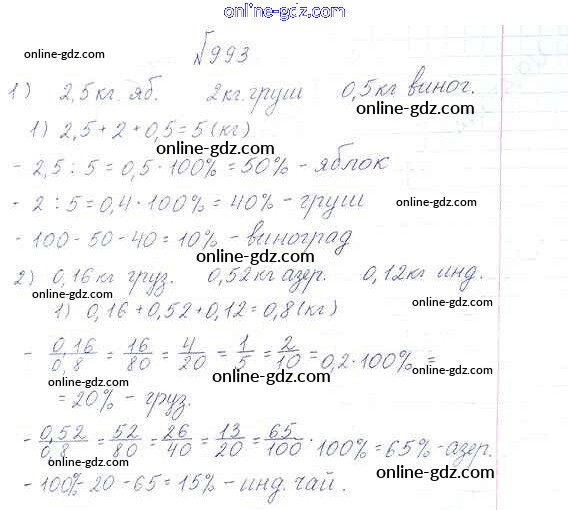 www.online-gdz.com
online-gdz.com
№993
online-gdz.com
1) 2,5 кг. яб. 2 кг. груш 0,5 кг виног.
online-gdz.com
1) 2,5 + 2 + 0,5 = 5 (кг)
online-gdz.com
- 2,5 : 5 = 0,5 · 100% = 50% - яблок
online-gdz.com
- 2 : 5 = 0,4 · 100% = 40% - груш
online-gdz.com
- 100 - 50 - 40 = 10% - виноград
online-gdz.com
2) 0,16 кг груз. 0,52 кг азер. 0,12 кг инд.
online-gdz.com online-gdz.com
1) 0,16 + 0,52 + 0,12 = 0,8 (кг)
- 0,16/0,8 = 16/80 = 4/20 = 1/5 = 2/10 = 0,2 · 100% =
online-gdz.com online-gdz.com
= 20% - груз.
online-gdz.com
- 0,52/0,8 = 52/80 = 26/40 = 13/20 = 65/100 · 100% = 65% - азер.
online-gdz.com online-gdz.com
- 100% - 20 - 65 = 15% - инд. чай.
online-gdz.com